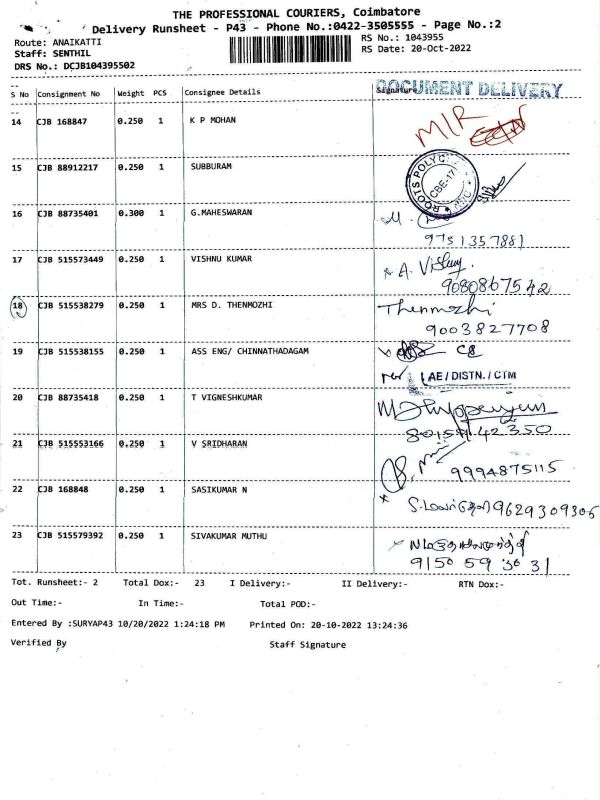 THE PROFESSIONAL COURIERS, Coimbatore
Delivery Runsheet - P43 - Phone No.:0422-3505555 - Page No.:2
Route: ANAIKATTI
RS No.: 1043955
Staff: SENTHIL
RS Date: 20-Oct-2022
DRS No.: DCJB104395502
S No Consignment No Weight PCS Consignee Details Signature DOCUMENT DELIVERY
14 CJB 168847 0.250 1 K P MOHAN M/R
15 CJB 88912217 0.250 1 SUBBURAM ROOTS POLYC CBE-17
16 CJB 88735401 0.300 1 G.MAHESWARAN
9751357881
17 CJB 515573449 0.250 1 VISHNU KUMAR A. Vishnu
9080867542
18 CJB 515538279 0.250 1 MRS D. THENMOZHI Thenmozhi
9003827708
19 CJB 515538155 0.250 1 ASS ENG/ CHINNATHADAGAM
AE / DISTN. / CTM
20 CJB 88735418 0.250 1 T VIGNESHKUMAR
21 CJB 515553166 0.250 1 V SRIDHARAN
9994875115
22 CJB 168848 0.250 1 SASIKUMAR N 9629309305
23 CJB 515579392 0.250 1 SIVAKUMAR MUTHU
9150 59 30 31
Tot. Runsheet:- 2 Total Dox:- 23 I Delivery:- II Delivery:- RTN Dox:-
Out Time:- In Time:- Total POD:-
Entered By :SURYAP43 10/20/2022 1:24:18 PM Printed On: 20-10-2022 13:24:36
Verified By Staff Signature